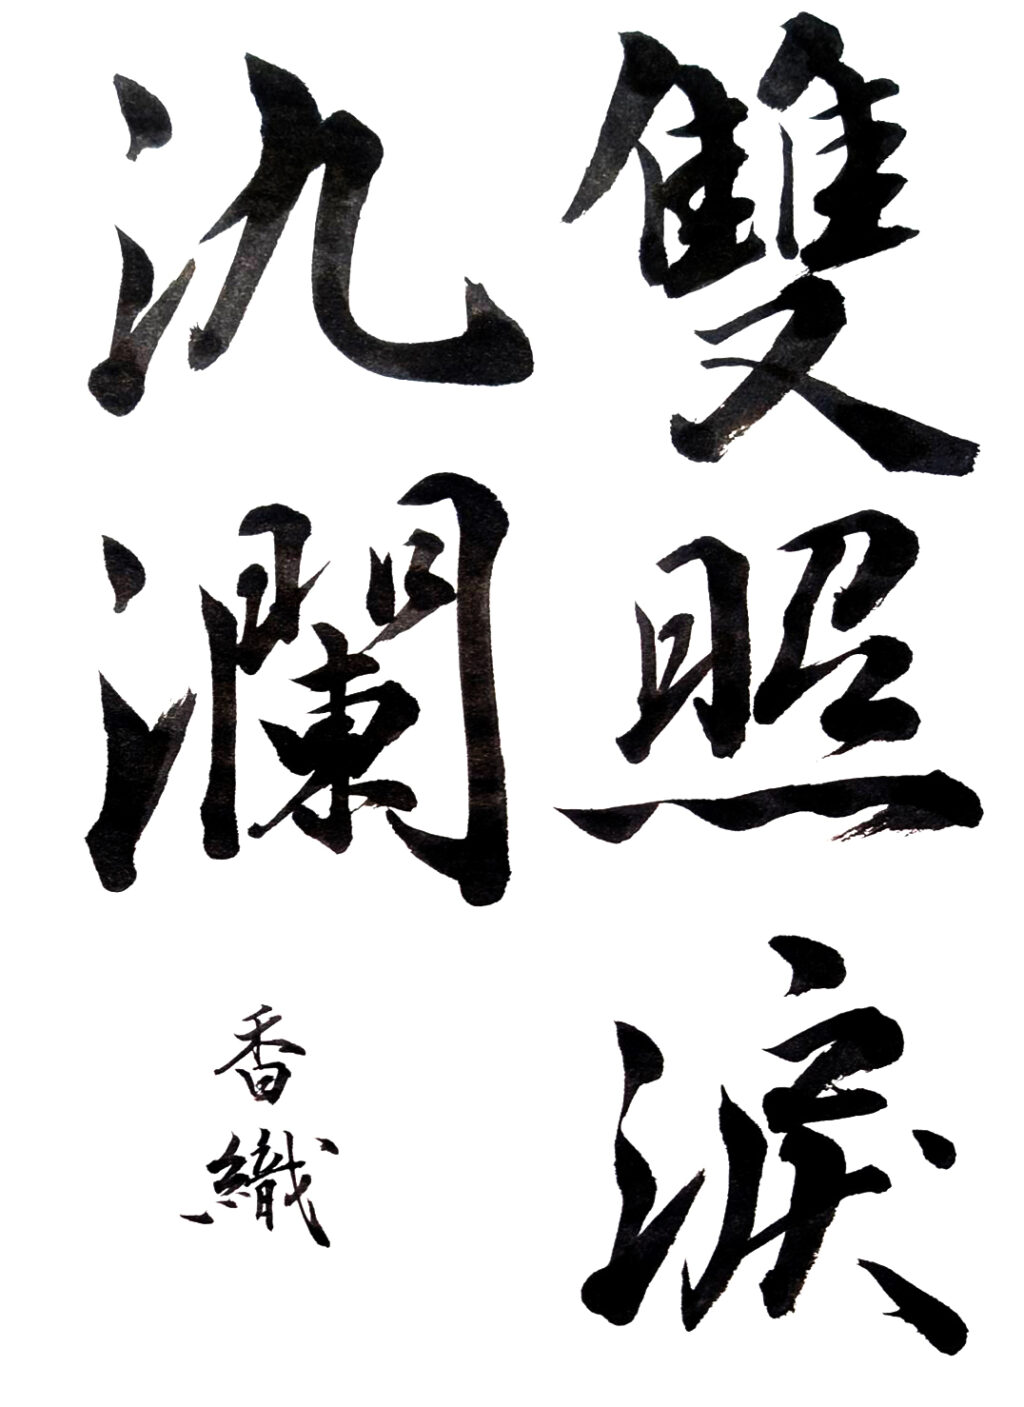 雙照淚
氿瀾
香織